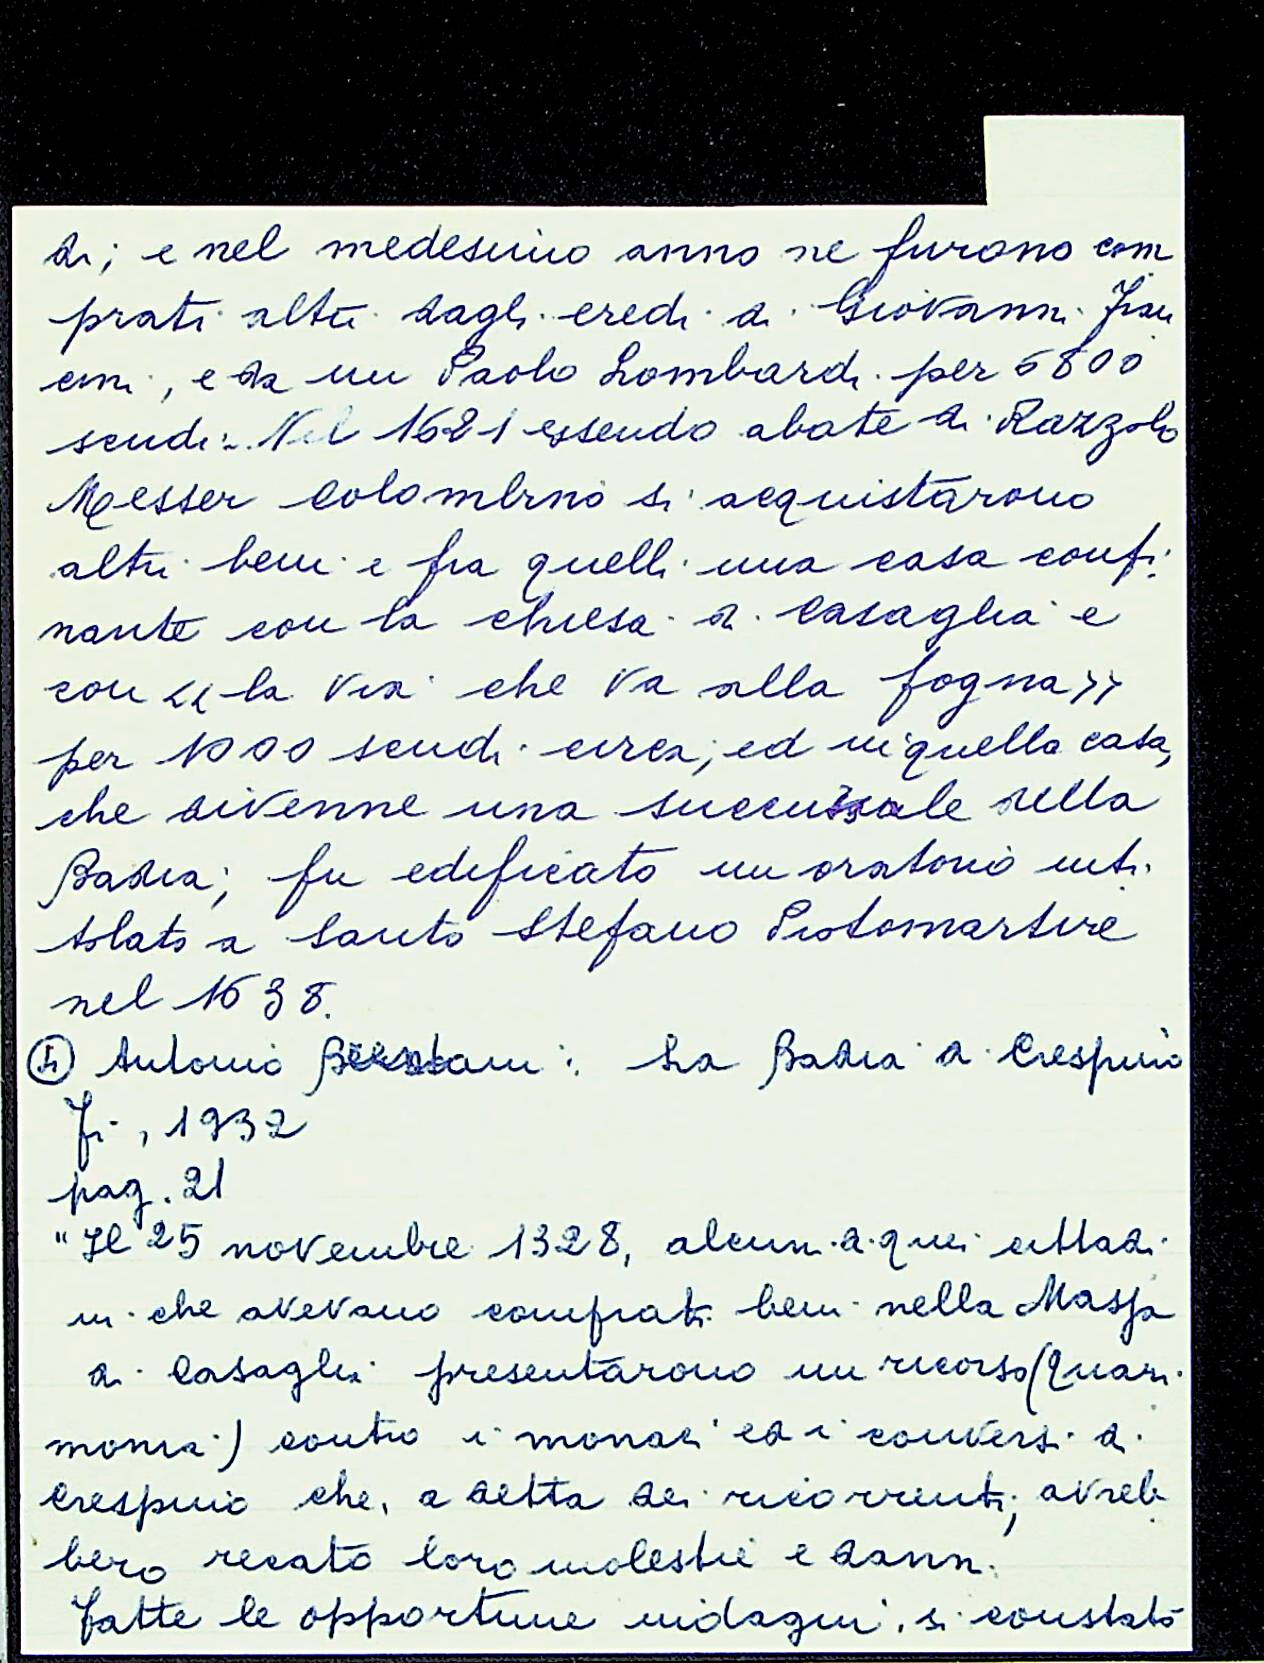 di; e nel medesimo anno ne furono com
prati altri dagli eredi di Giovanni Fran
cini, e da un Paolo Lombardi per 6800
scudi. Nel 1621 essendo abate di Razzolo
Messer Colombino si acquistarono
altri beni e fra quelli una casa confi
nante con la chiesa di Casaglia e
con << la via che va alla fogna >>
per 1000 scudi circa; ed in quella casa,
che divenne una succursale della
Badia, fu edificato un oratorio inti
tolato a Santo Stefano Protomartire
nel 1638.
Antonio : La Badia di Crespino
Fi, 1932
pag. 21
"Il 25 novembre 1328, alcuni di quei cittadi
ni che avevano comprati beni nella Massa
di Casaglia presentarono un ricorso (Quari
monia) contro i monaci ed i conversi di
Crespino che, a detta dei ricorrenti, avreb
bero recato loro molestie e danni.
Fatte le opportune indagini, si constatò